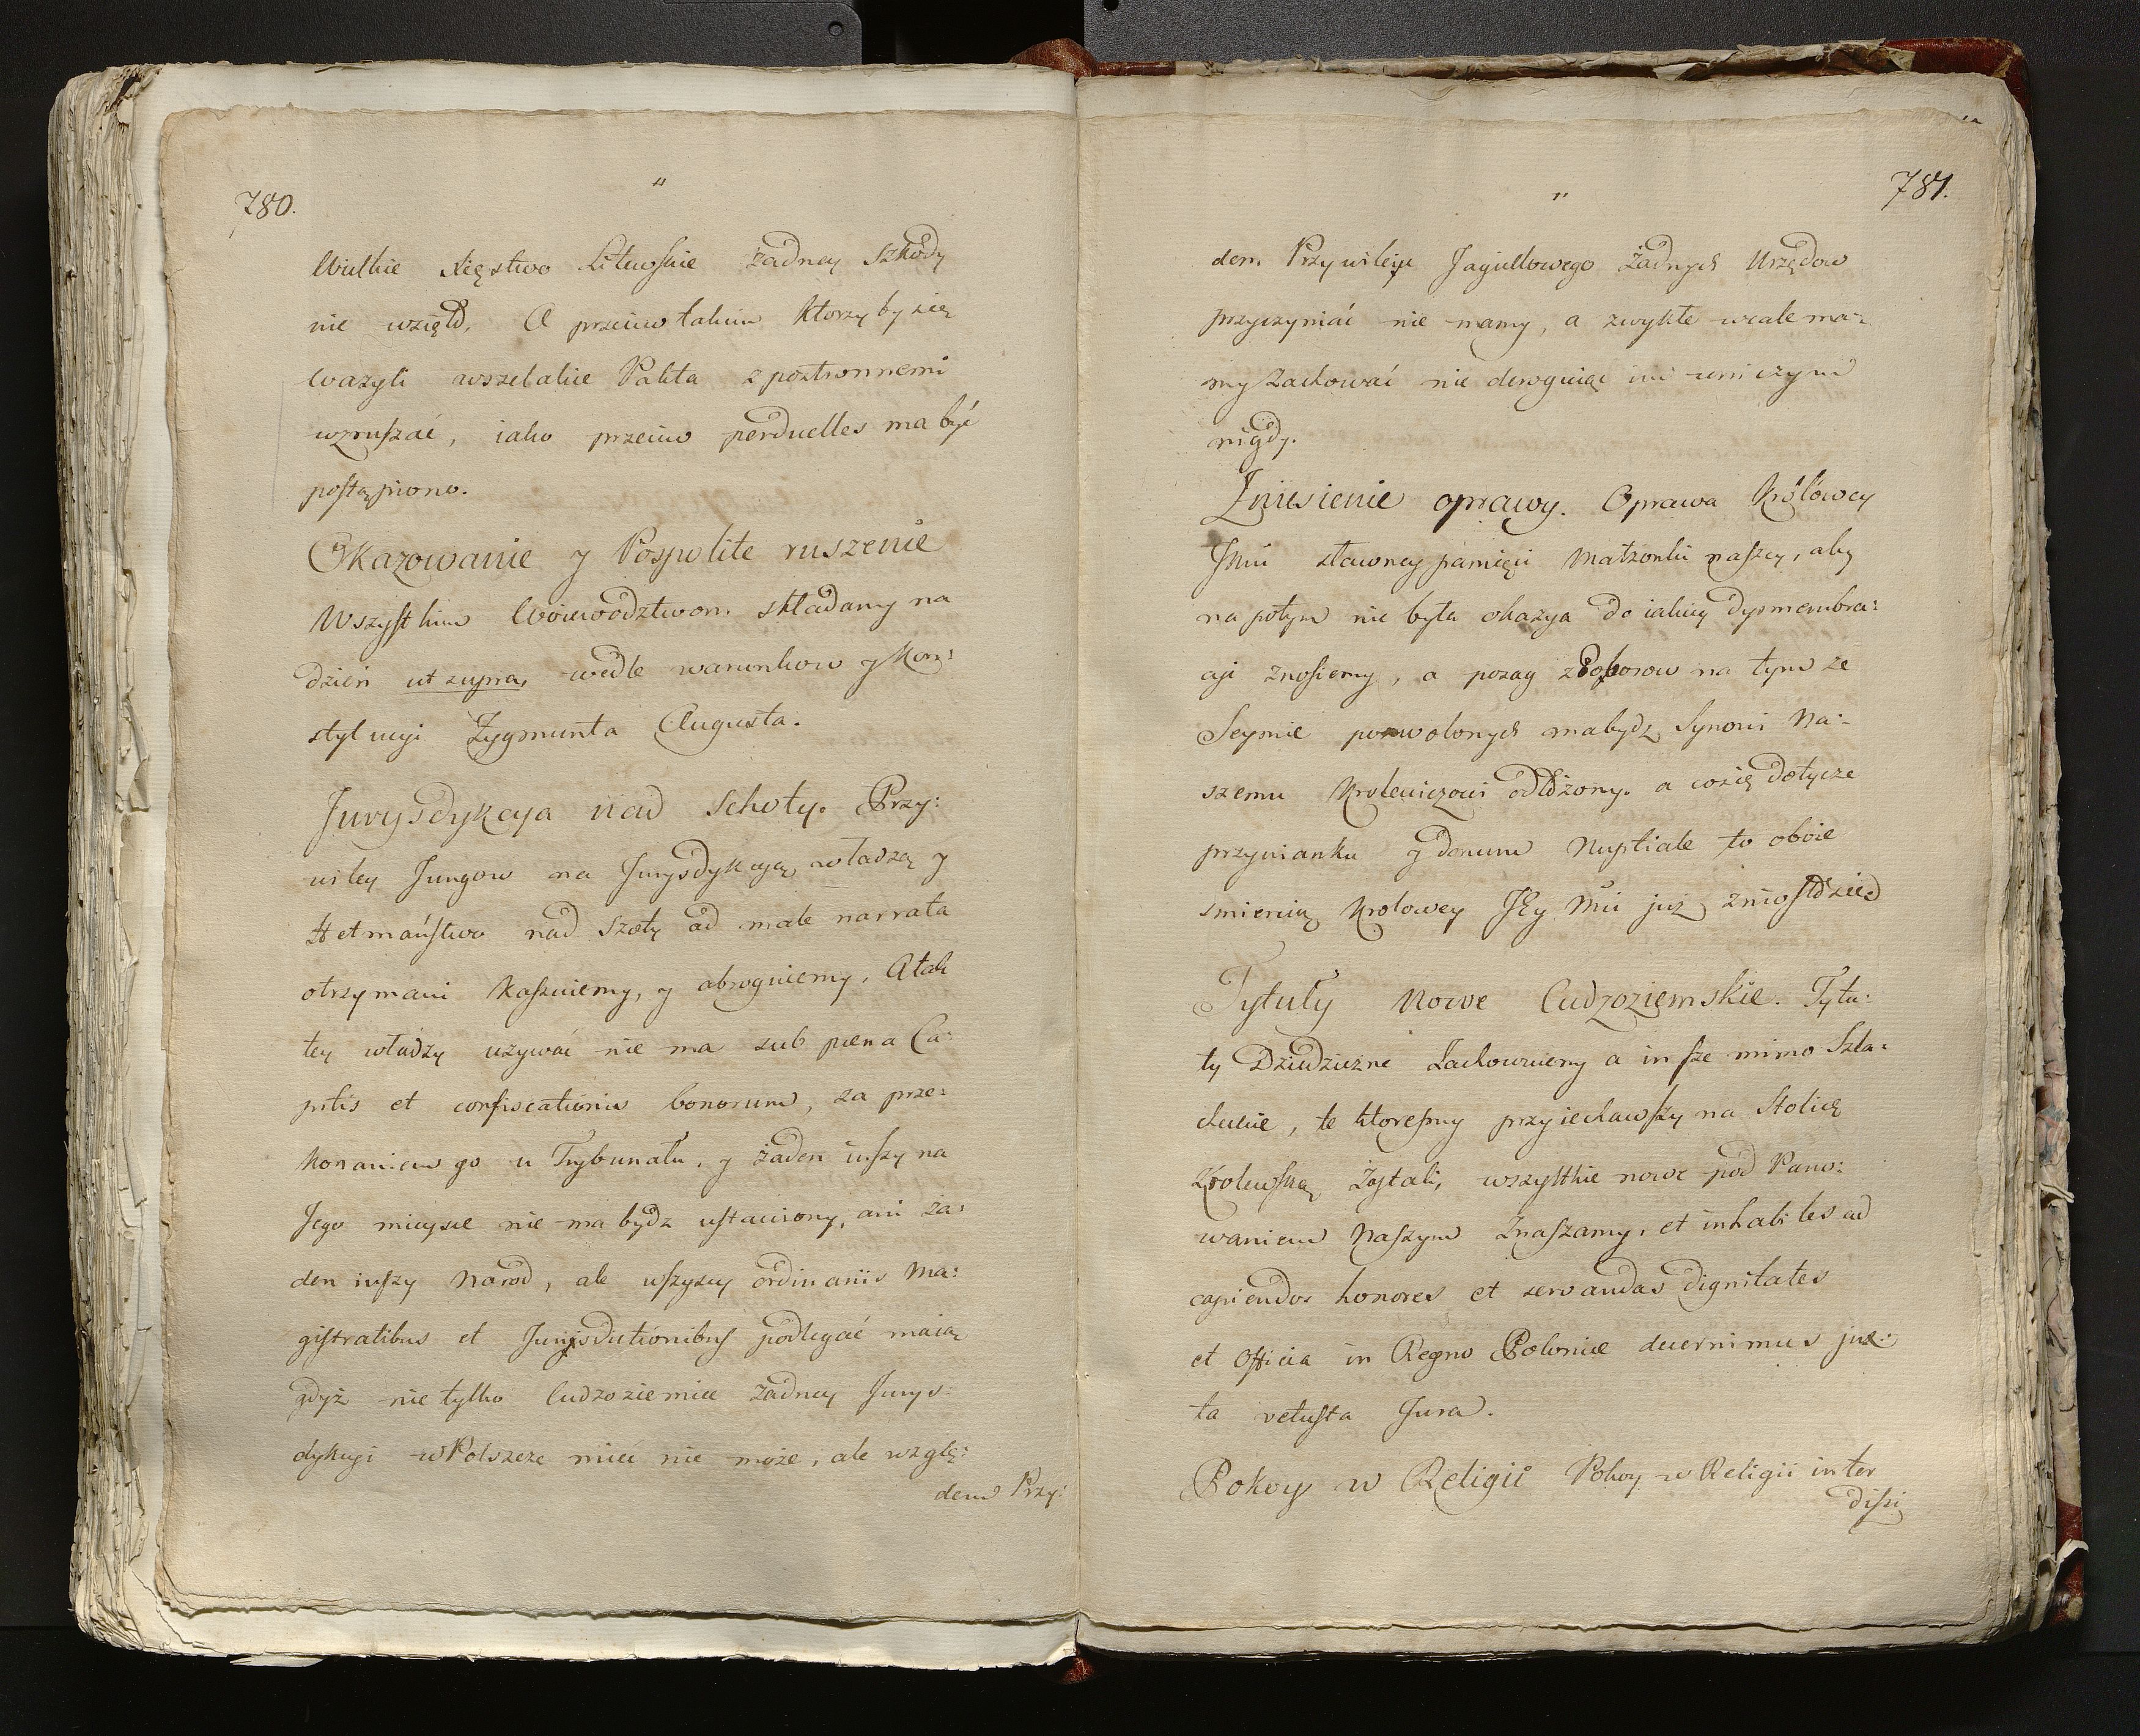 780.
Wielkie Xięstwo Litewskie żadney szkody
nie wzięło. A przeciw takim ktorzy by się
ważyli wszelakie Pakta z postronnemi
wzruszać, iako przeciw perduelles ma być
postąpiono.
Okazowanie y Pospolite ruszenie
Wszystkim Woiewodztwom składamy na
dzień ut supra, wedle warunkow y Kon:
stytucyi Zygmunta Augusta.
Jurysdykcya nad Schoty. Przy:
wiley Jungow na Jurysdykcyą władzą y
Hetmaństwo nad Szoty ad male narrata
otrzymani kassuiemy, y abroguiemy, A tak
tey władzy używać nie ma sub pœna Ca:
pitis et confiscationis bonorum, za prze:
konaniem go u Trybunału, y żaden inszy na
Jego mieysce nie ma bydz ustawiony, ani ża:
den inszy Narod, ale wszyscy ordinariis Ma:
gistratibus et Jurisdictionibus podlegać maią
gdyż nie tylko Cudzoziemiec żadney Jurys:
dykcyi w Polszcze mieć nie może, ale wzglę:
dem Przy:
781.
dem Przywileju Jagiellowego żadnych Urzędow
przyczyniać nie mamy, a zwykłe wcale ma:
my zachować nie deroguiąc im wniczym
nigdy.
Zniesienie oprawy. Oprawa Królowey
Jmci sławney pamięci Małżonki naszey, aby
na potym nie była okazya do iakiey dysmembra:
cyi znosiemy, a posag z Poborow na tym ze
Seymie pozwolonych ma bydz Synowi Na:
szemu Krolewiczowi odłożony. a co się dotycze
przywianku y donum Nuptiale to oboie
smiercią Krolowey JEy Mci już zniosło się
Tytuły Nowe Cudzoziemskie. Tytu:
ły Dziedziczne Zachowuiemy a insze mimo Szla:
checkie, te ktoresmy przyiechawszy na Stolicę
Krolewską Zastali, wszystkie nowe pod Pano:
waniem Naszym Znaszamy, et inhabiles ad
capiendos honores et servandas dignitates
et Officia in Regno Poloniæ decernimus jux:
ta vetusta Jura.
Pokoy w Religii Pokoy w Religii inter
dissi